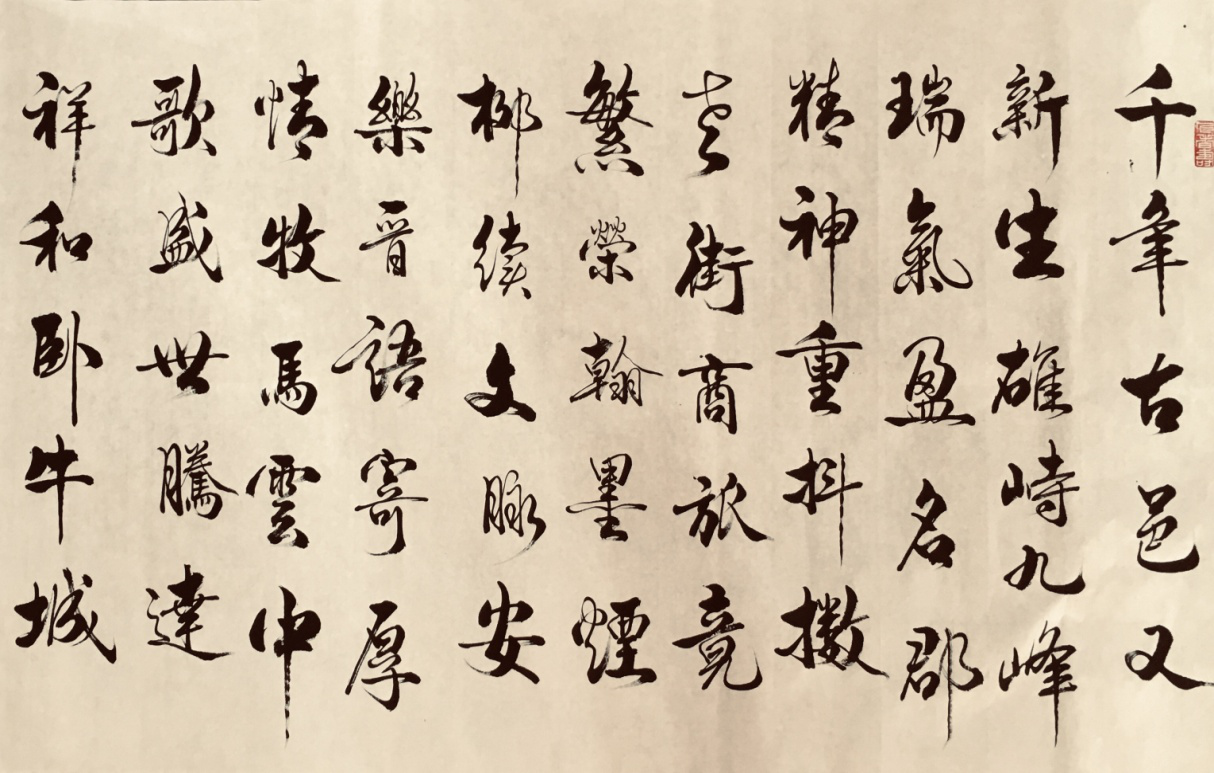 千年古邑又
新生雄峙九峰
瑞氣盈名郡
精神重抖擻
老街商旅竟
繁榮翰墨煙
柳續文脉安
樂晋語寄厚
情牧馬雲中
歌盛世騰達
祥和卧牛城